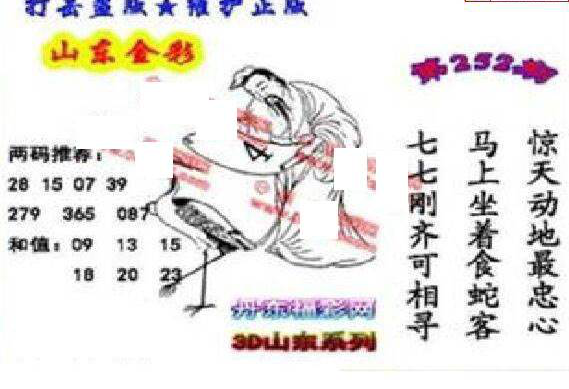 打击盗版★维护正版
山东金彩
第252期
两码推荐:
28 15 07 39
279 365 087
和值: 09 13 15
18 20 23
惊天动地最忠心
马上坐着食蛇客
七七刚齐可相寻
3D山东系列